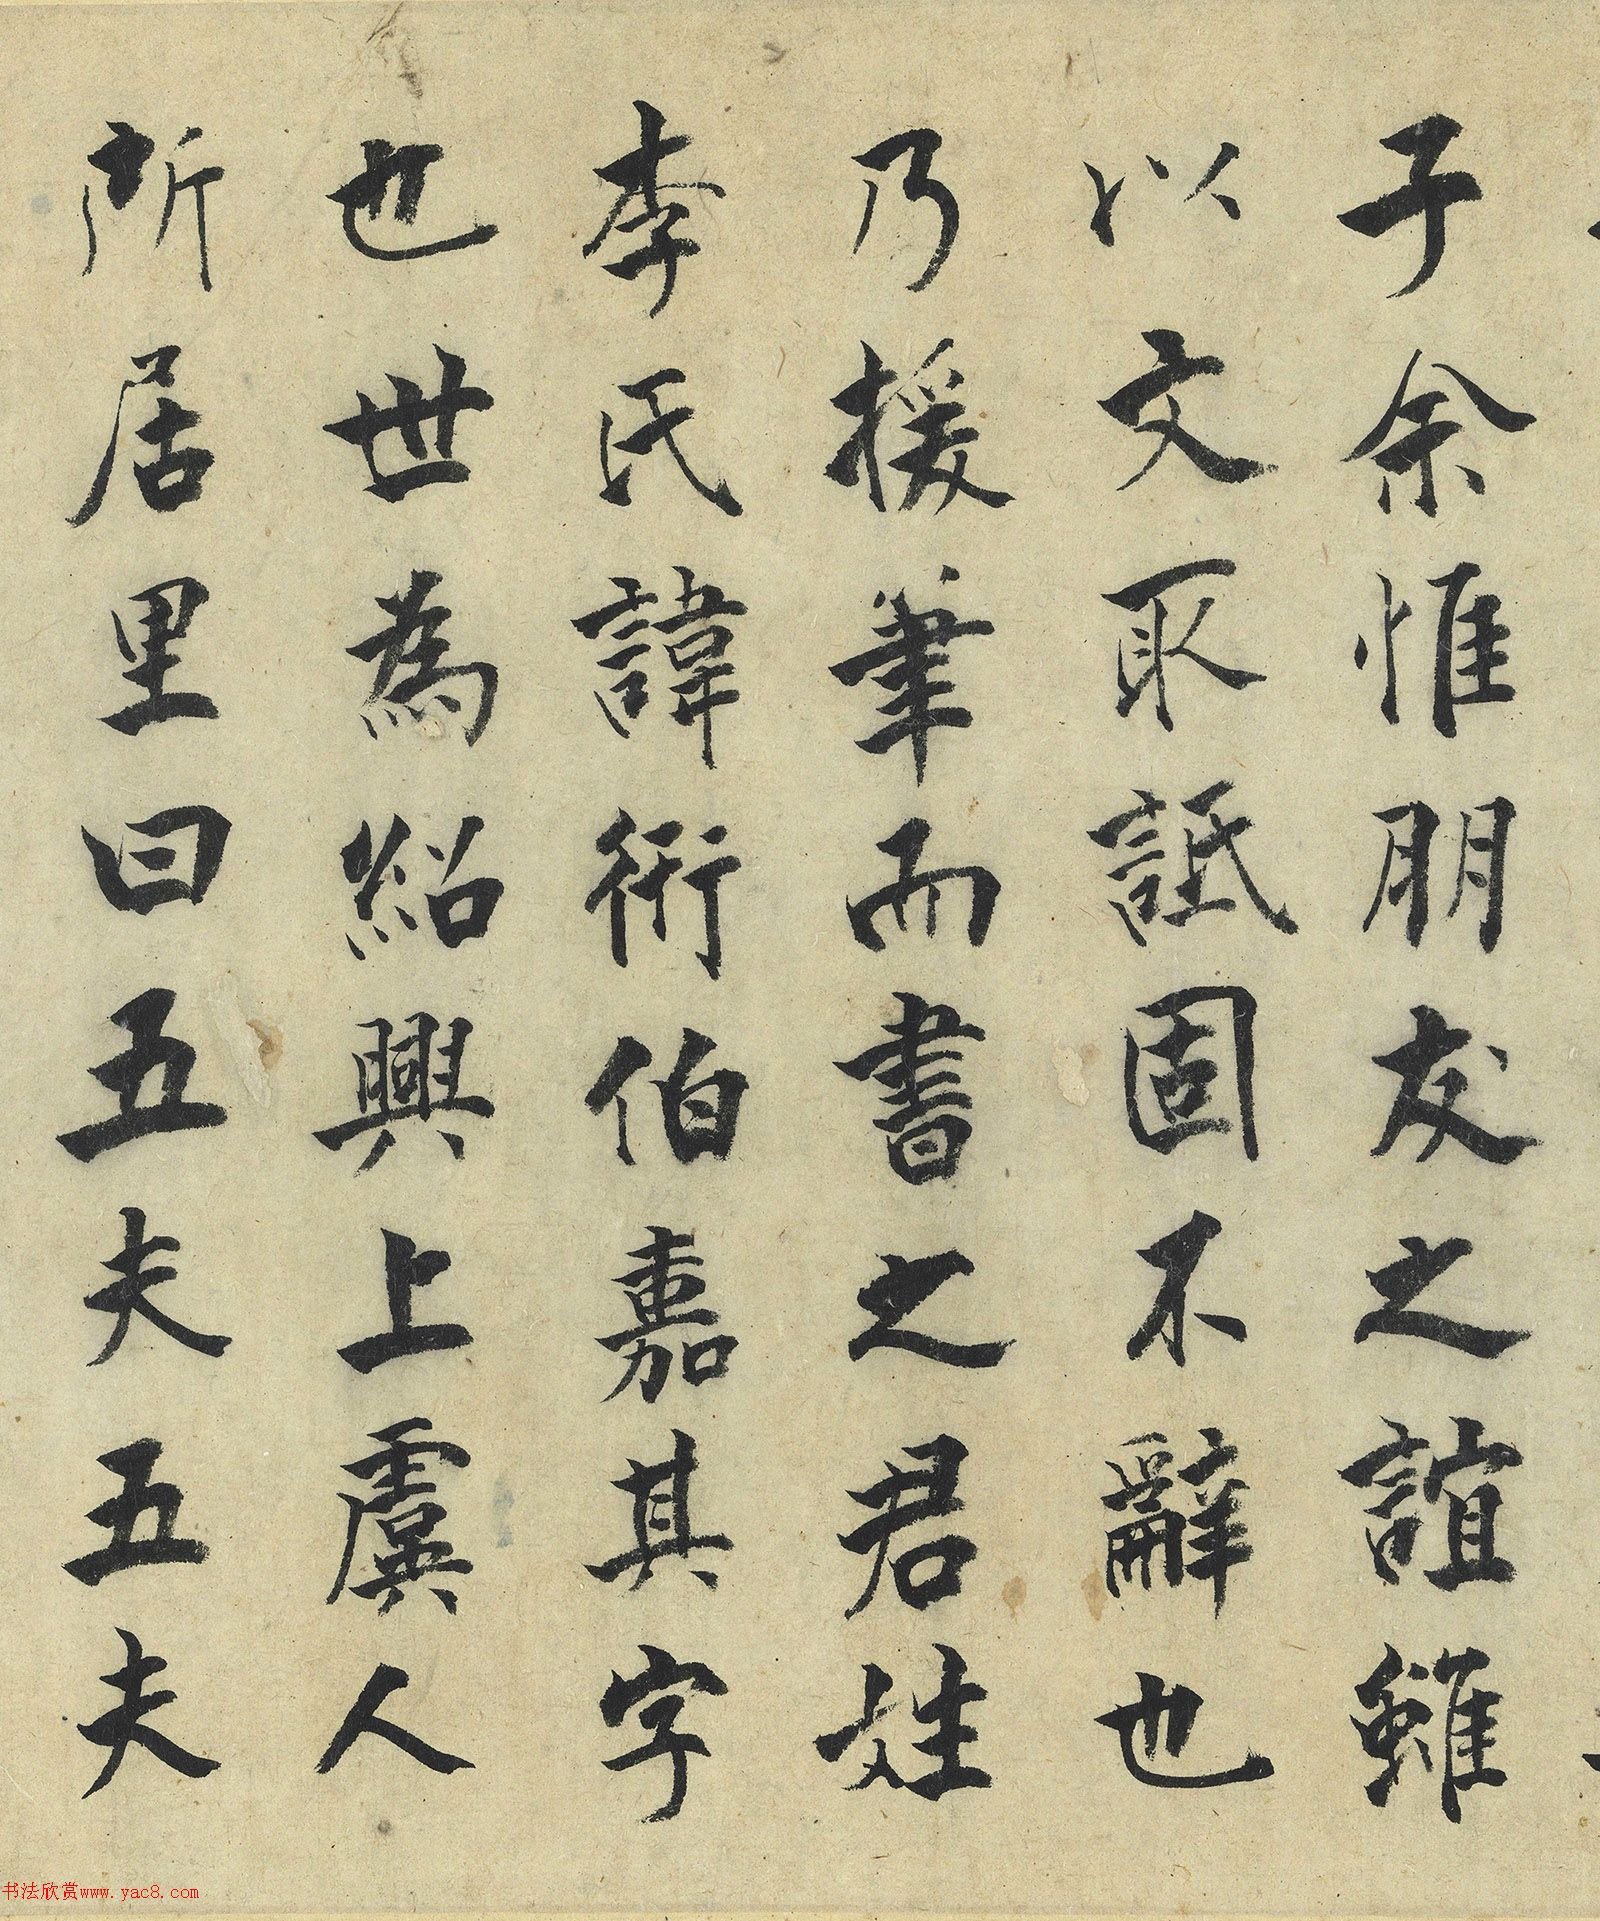 子余惟朋友之誼雖
以文取詆固不辭也
乃援筆而書之君姓
李氏諱衎伯嘉其字
也世為紹興上虞人
所居里曰五夫五夫
书法欣赏www.yac8.com